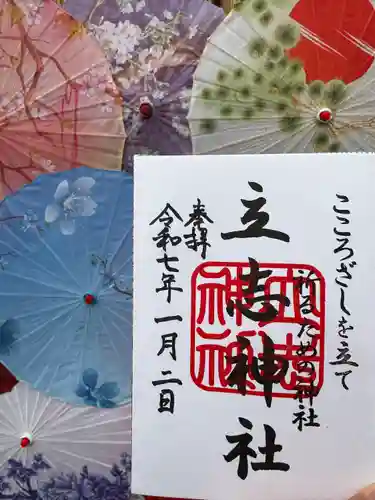 こころざしを立て
祈るための神社
立志神社
奉拝
令和七年一月二日
立志
神社